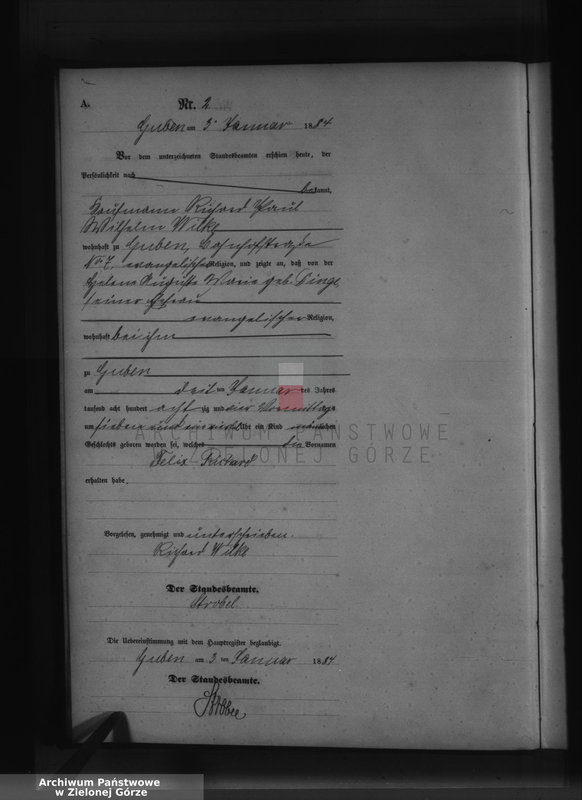 A.
Nr. 2
Guben am 3. Januar 1884
Vor dem unterzeichneten Standesbeamten erschien heute, der
Persönlichkeit nach
bekannt,
Kaufmann Richard Paul
Wilhelm Wilke
wohnhaft zu Guben, Bahnhofstraße
No 7, evangelischer Religion, und zeigte an, daß von der
Helene Auguste Marie geb.
seiner Ehefrau
evangelischer Religion,
wohnhaft bei ihm
zu Guben
am ten Januar des Jahres
tausend acht hundert acht zig und vier Vormittags
um sieben und ein Uhr ein Kind männlichen
Geschlechts geboren worden sei, welches die Vornamen
Felix Richard
erhalten habe.
Vorgelesen, genehmigt und unterschrieben.
Richard Wilke
Der Standesbeamte.
Strobel
Die Uebereinstimmung mit dem Hauptregister beglaubigt.
Guben am 3 ten Januar 1884.
Der Standesbeamte.
ARCHIWUM PAŃSTWOWE
W ZIELONEJ GÓRZE
Archiwum Państwowe
w Zielonej Górze